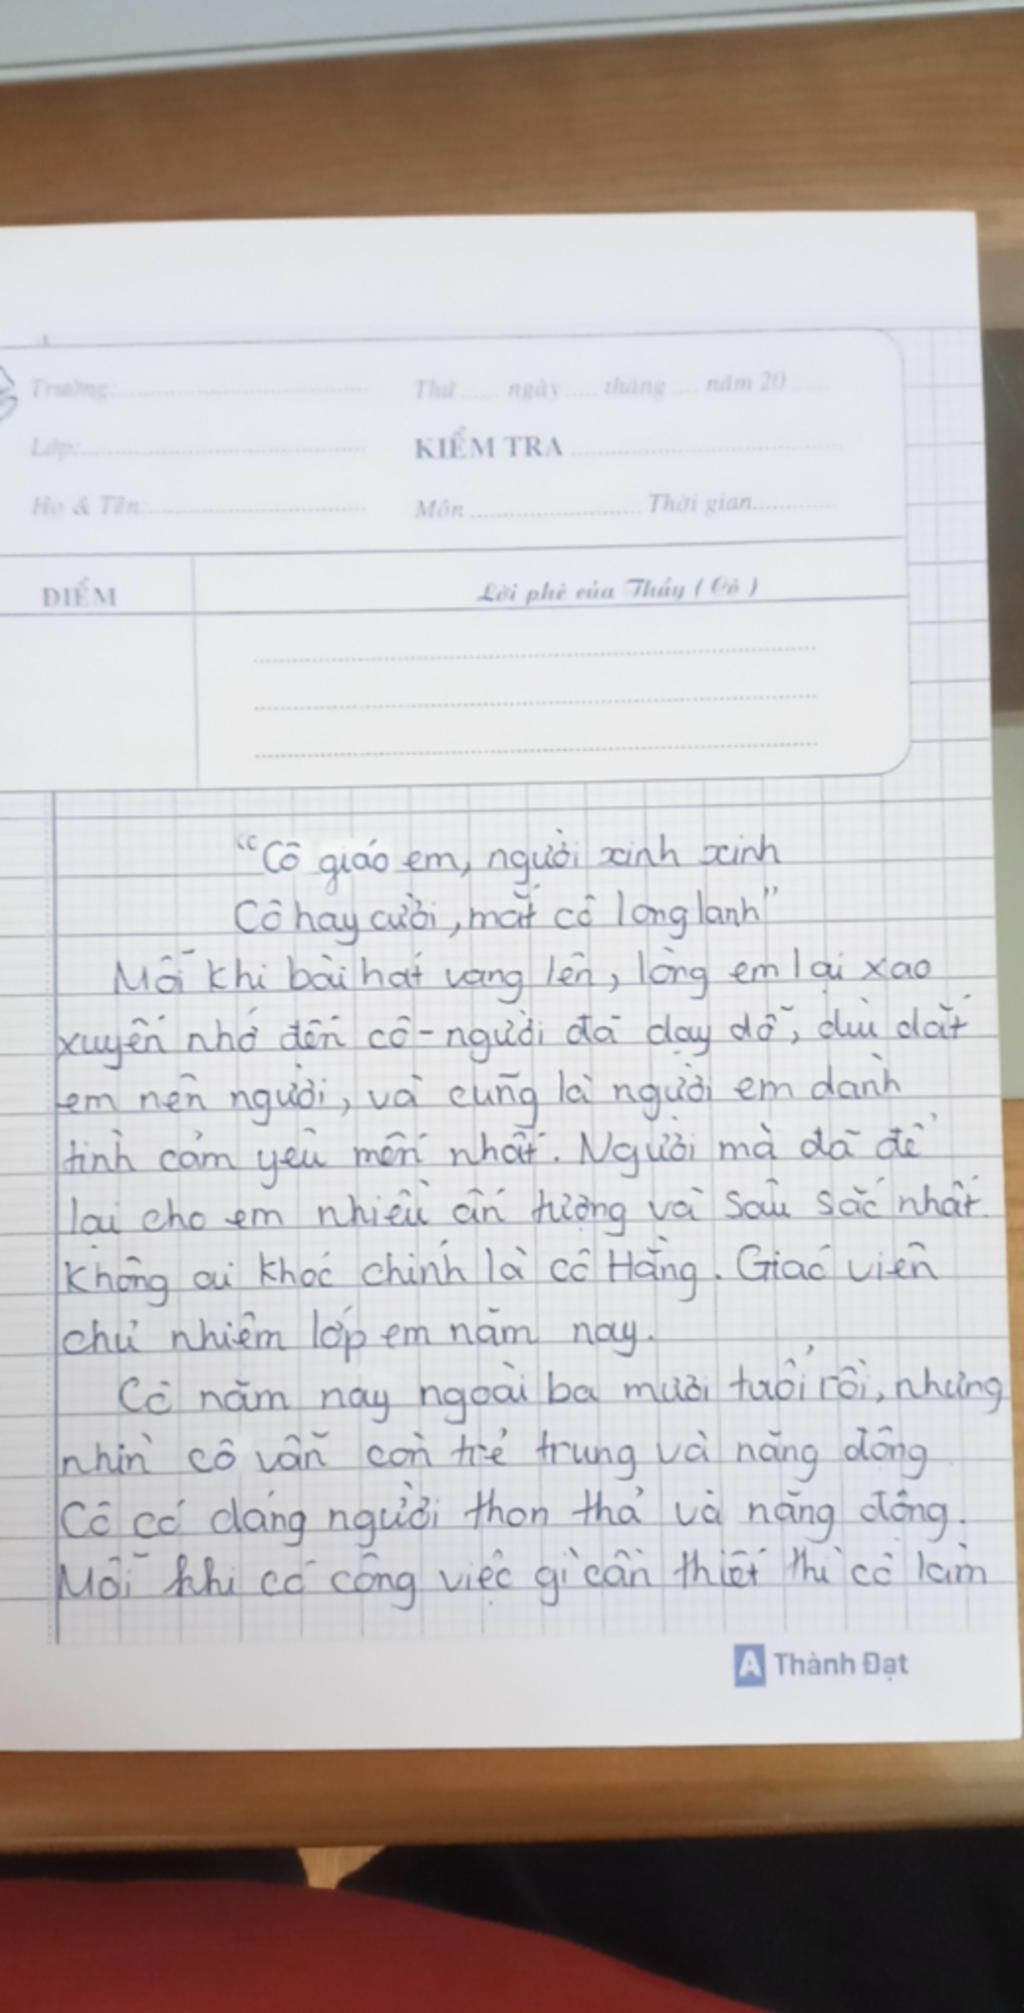 Trường:
Thứ ..... ngày ..... tháng .... năm 20 .....
Lớp:
KIỂM TRA
Họ & Tên:
Môn ..................... Thời gian............
ĐIỂM
Lời phê của Thầy ( Cô )
"Cô giáo em, người xinh xinh
Cô hay cười, mắt cô long lanh"
Mỗi khi bài hát vang lên, lòng em lại xao
xuyến nhớ đến cô - người đã dạy dỗ, dìu dắt
em nên người, và cũng là người em dành
tình cảm yêu mến nhất. Người mà đã để
lại cho em nhiều ấn tượng và sâu sắc nhất.
Không ai khác chính là cô Hằng. Giáo viên
chủ nhiệm lớp em năm nay.
Cô năm nay ngoài ba mươi tuổi rồi, nhưng
nhìn cô vẫn còn trẻ trung và năng động
Cô có dáng người thon thả và năng động.
Mỗi khi có công việc gì cần thiết thì cô làm
A Thành Đạt